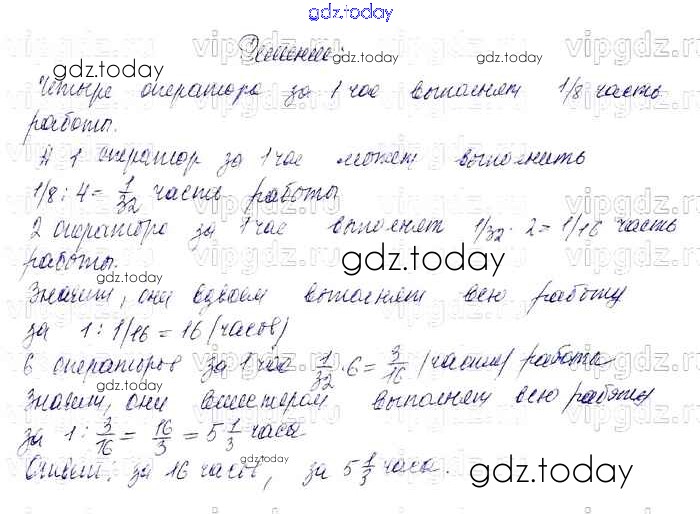 gdz.today
Решение:
Четыре оператора за 1 час выполнят 1/8 часть
работы.
А 1 оператор за 1 час может выполнить
1/8 : 4 = 1/32 часть работы
2 оператора за 1 час выполнят 1/32 · 2 = 1/16 часть
работы.
Значит, они вдвоем выполнят всю работу
за 1 : 1/16 = 16 (часов)
6 операторов за 1 час 1/32 · 6 = 3/16 (части) работы
Значит, они вшестером выполнят всю работу
за 1 : 3/16 = 16/3 = 5 1/3 часа
Ответ: за 16 часов, за 5 1/3 часа.
gdz.today
gdz.today
gdz.today
gdz.today
gdz.today
gdz.today
vipgdz.ru